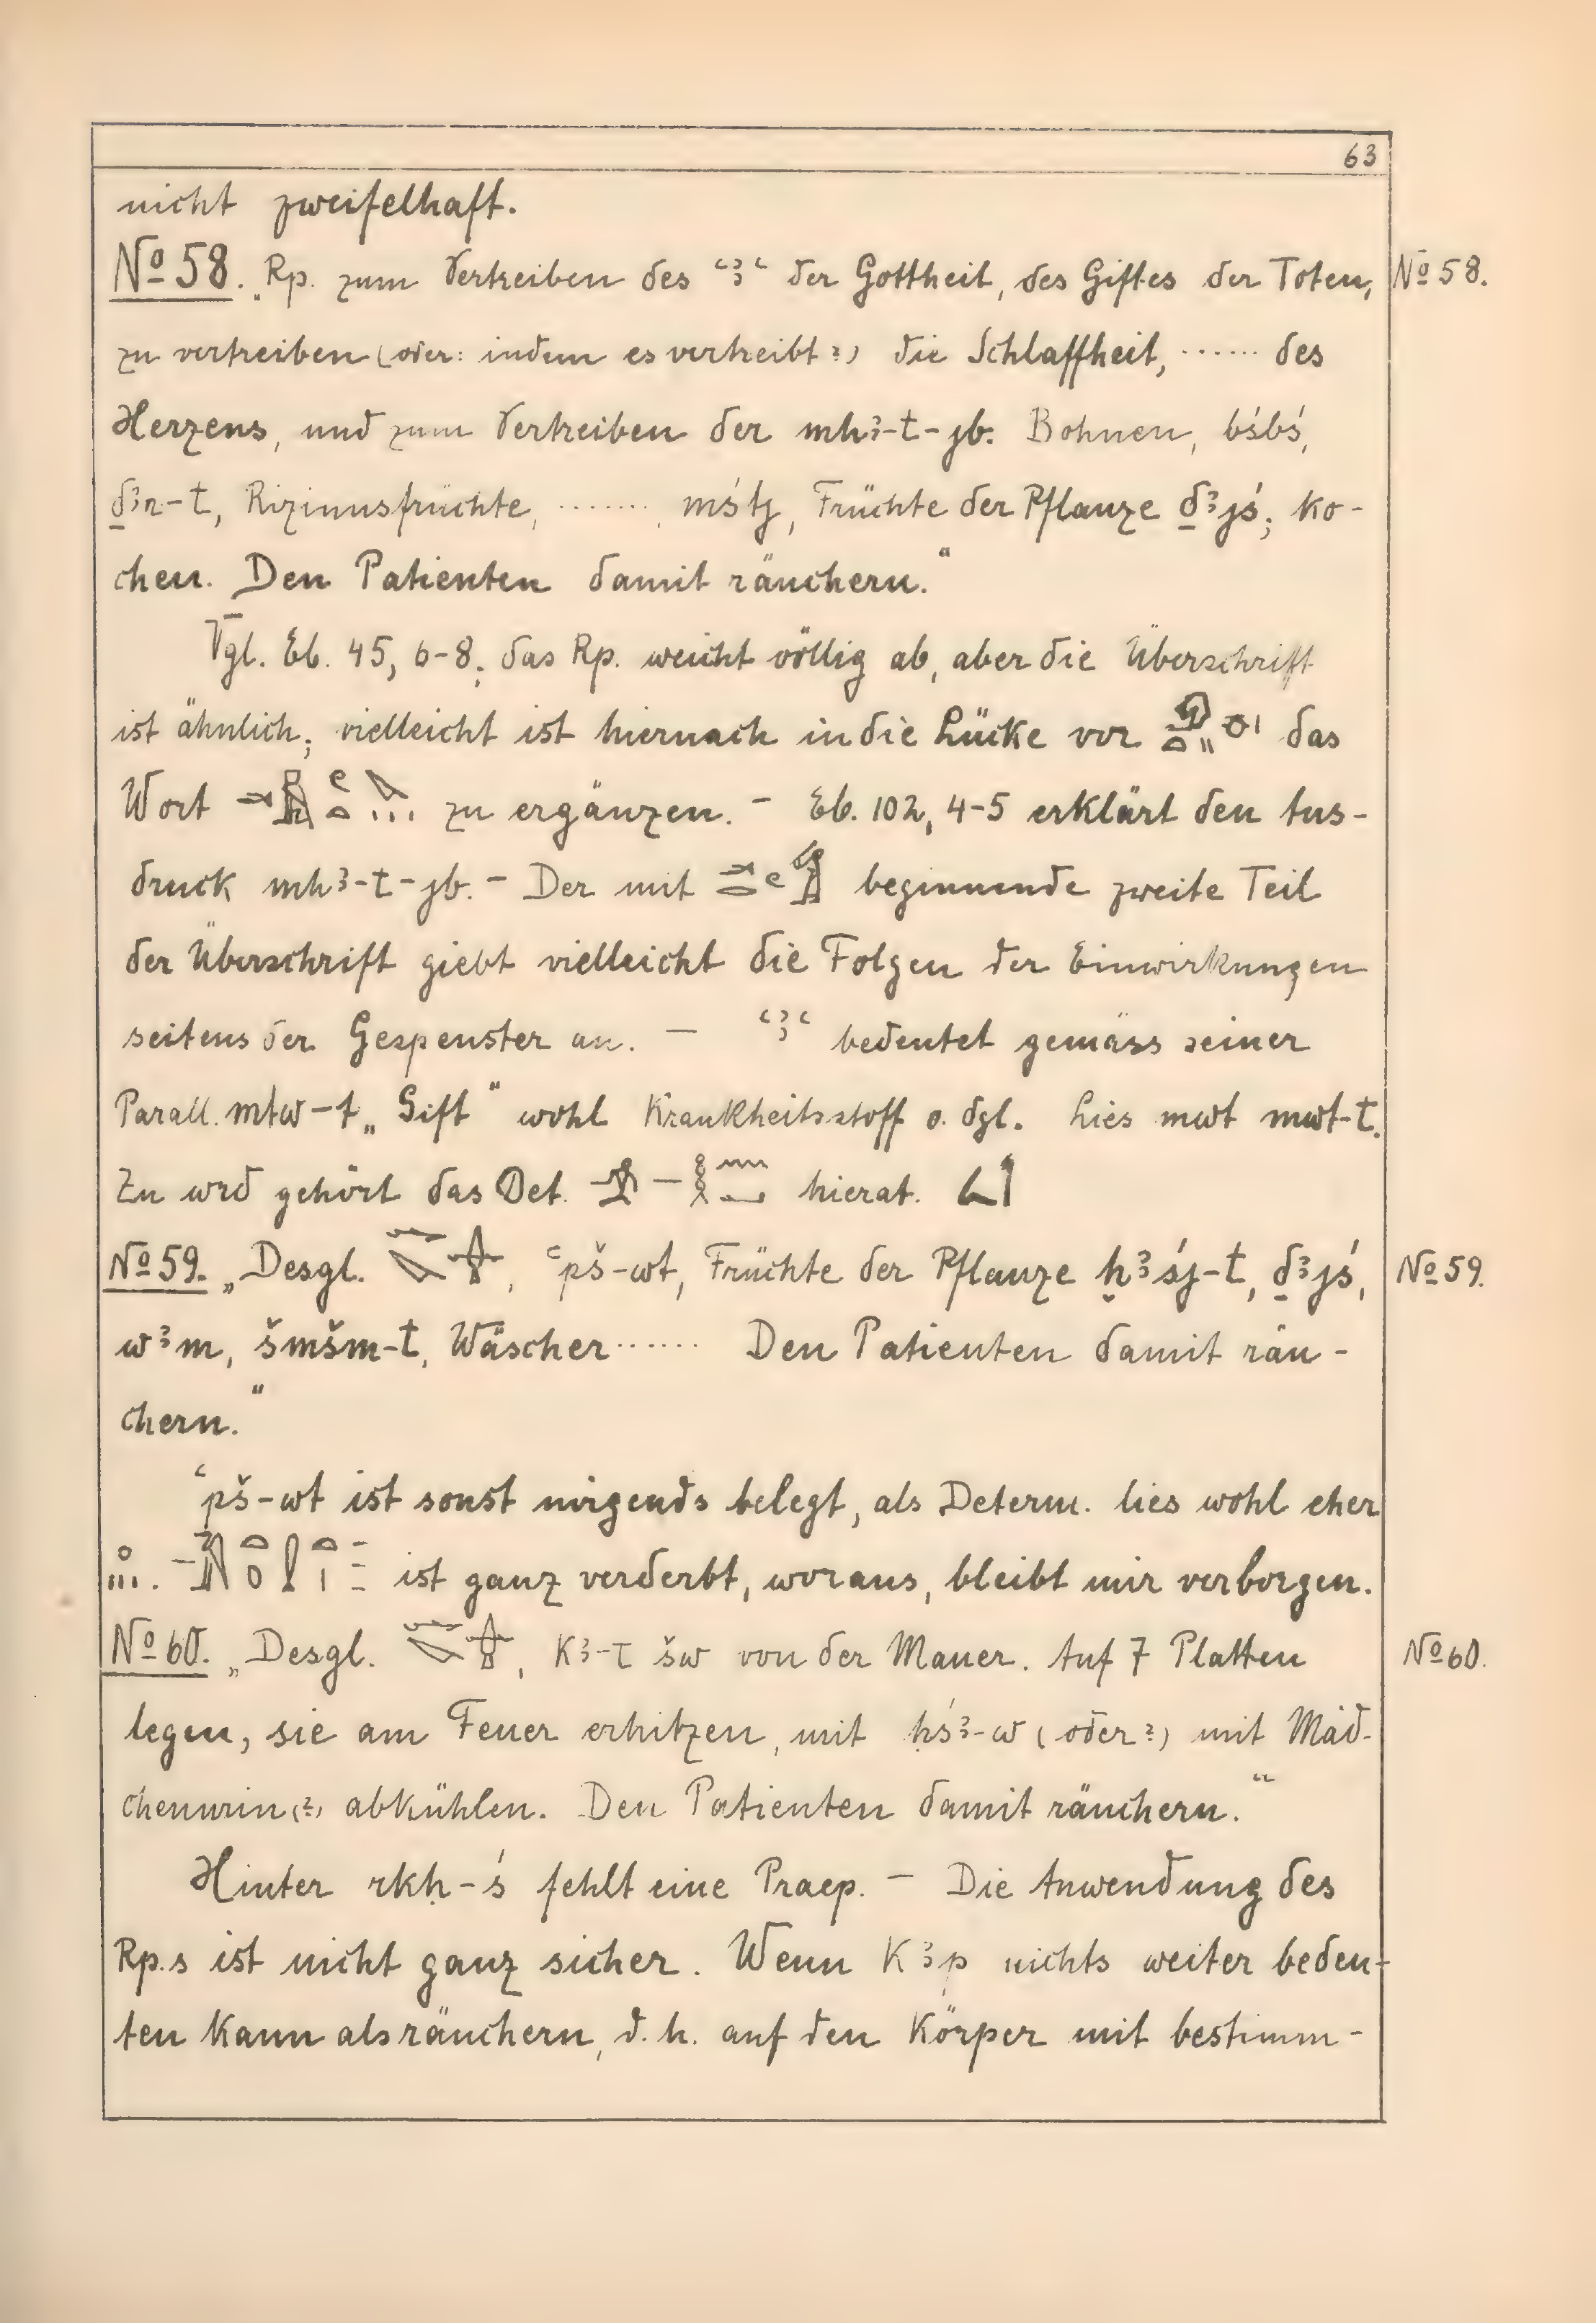 63
nicht zweifelhaft.
No 58. „Rp. zum Vertreiben des ꜥꜣꜥ der Gottheit, des Giftes der Toten, No 58.
zu vertreiben (oder: indem es vertreibt?) die Schlaffheit, ······ des
Herzens, und zum Vertreiben der mhꜣ-t-jb. Bohnen, bśbś,
ḏꜣr-t, Rizinusfrüchte, ······· , mśtj, Früchte der Pflanze ḏꜣjś; ko-
chen. Den Patienten damit räuchern.“
Vgl. Eb. 45, 6-8; das Rp. weicht völlig ab, aber die Überschrift
ist ähnlich; vielleicht ist hiernach in die Lücke vor das
Wort zu ergänzen. – Eb. 102, 4-5 erklärt den Aus-
druck mhꜣ-t-jb. – Der mit beginnende zweite Teil
der Überschrift giebt vielleicht die Folgen der Einwirkungen
seitens der Gespenster an. – ꜥꜣꜥ bedeutet gemäss seiner
Parall. mtw-t „Gift“ wohl Krankheitsstoff o. dgl. Lies mwt mwt-t.
Zu wrd gehört das Det. – hierat.
No 59. „Desgl. , ꜥpš-wt, Früchte der Pflanze ḫꜣśj-t, ḏꜣjś, No 59.
wꜣm, šmšm-t, Wäscher ······ Den Patienten damit räu-
chern.“
ꜥpš-wt ist sonst nirgends belegt, als Determ. lies wohl eher
. – ist ganz verderbt, woraus, bleibt mir verborgen.
No 60. „Desgl. , kꜣ-t šw von der Mauer. Auf 7 Platten No 60.
legen, sie am Feuer erhitzen, mit ḥśꜣ-w (oder?) mit Mäd-
chenurin(?) abkühlen. Den Patienten damit räuchern.“
Hinter rkḥ-ś fehlt eine Praep. – Die Anwendung des
Rp.s ist nicht ganz sicher. Wenn kꜣp nichts weiter bedeu-
ten kann als räuchern, d. h. auf den Körper mit bestimm-